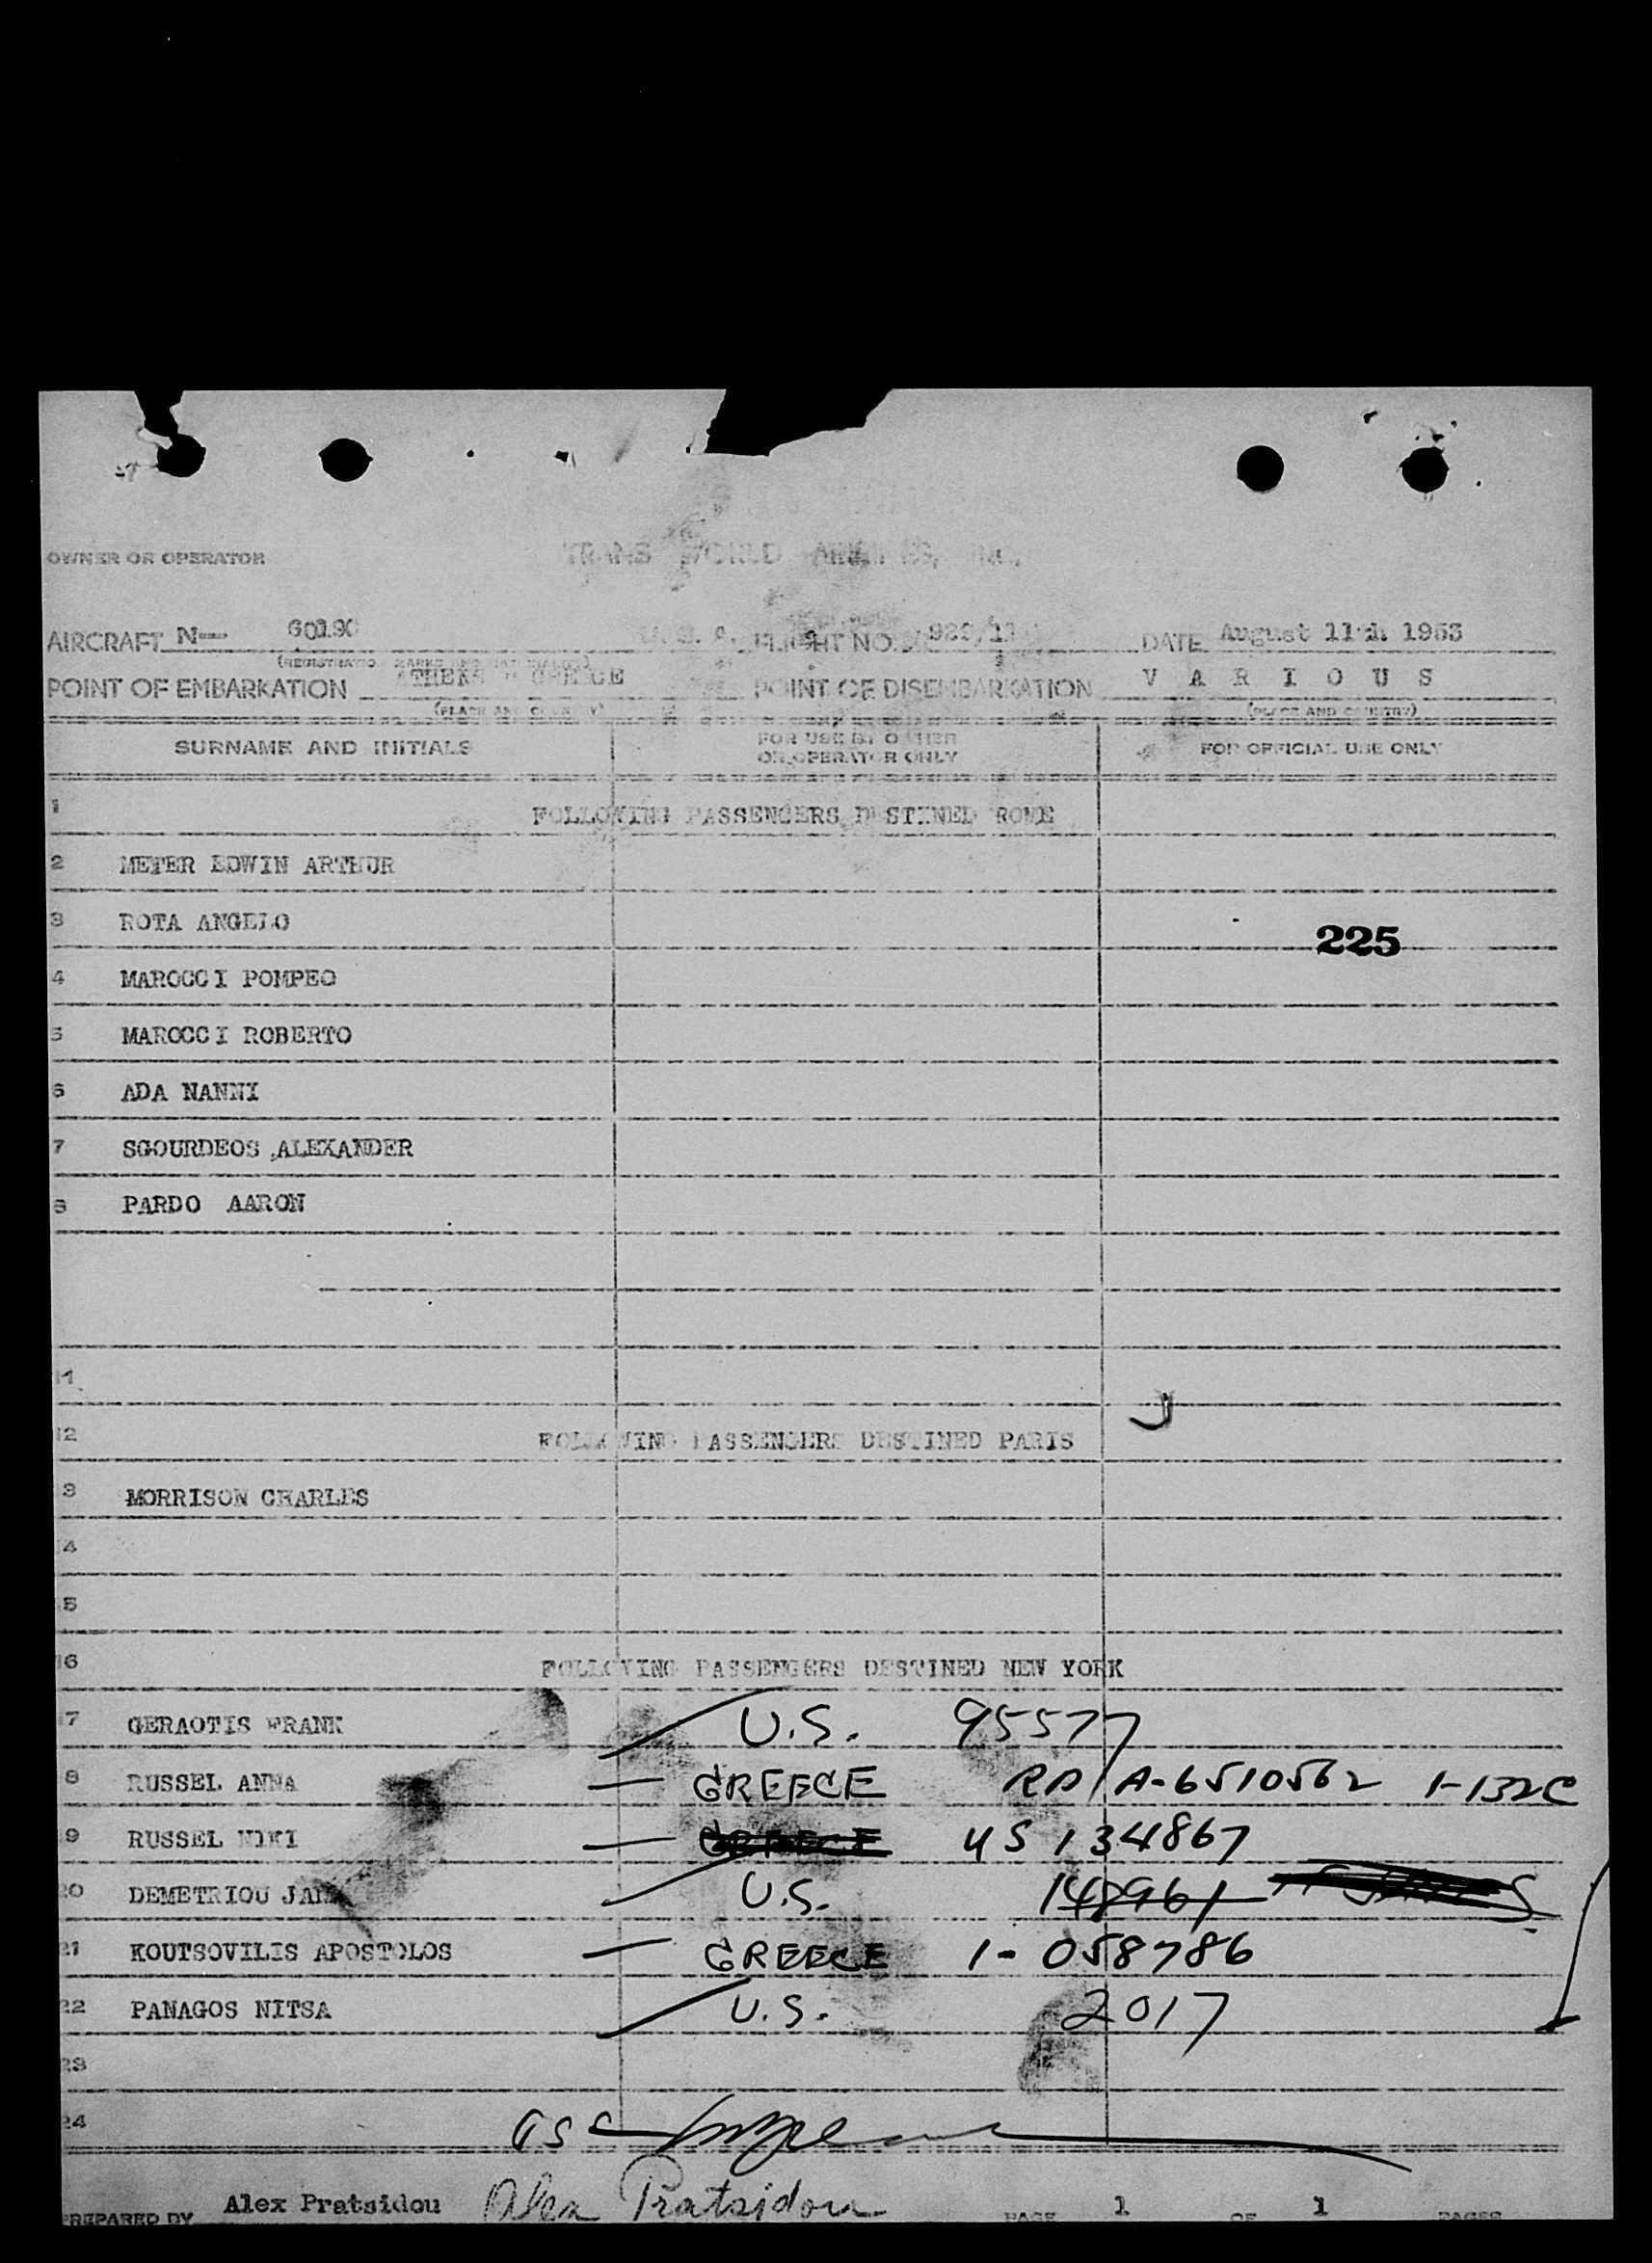 OWNER OR OPERATOR TRANS WORLD AIRLINES, INC.
AIRCRAFT N— U. S. A. FLIGHT NO. DATE August 11th 1953
(REGISTRATION MARKS AND NATIONALITY)
POINT OF EMBARKATION ATHENS GREECE POINT OF DISEMBARKATION V A R I O U S
(PLACE AND COUNTRY) (PLACE AND COUNTRY)
SURNAME AND INITIALS FOR USE BY OWNER OR OPERATOR ONLY FOR OFFICIAL USE ONLY
1 FOLLOWING PASSENGERS DESTINED ROME
2 MEYER EDWIN ARTHUR
3 ROTA ANGELO 225
4 MAROCCI POMPEO
5 MAROCCI ROBERTO
6 ADA NANNI
7 SGOURDEOS ALEXANDER
8 PARDO AARON
11
12 FOLLOWING PASSENGERS DESTINED PARIS
3 MORRISON CHARLES
4
5
16 FOLLOWING PASSENGERS DESTINED NEW YORK
17 GERAOTIS FRANK U.S. 95577
8 RUSSEL ANNA GREECE RP/A-6510562 1-132C
9 RUSSEL NIKI GREECE US 134867
20 DEMETRIOU U.S. 148961
21 KOUTSOVILIS APOSTOLOS GREECE 1-058786
22 PANAGOS NITSA U.S. 2017
23
24
PREPARED BY Alex Pratsidou Alex Pratsidou PAGE 1 OF 1 PAGES